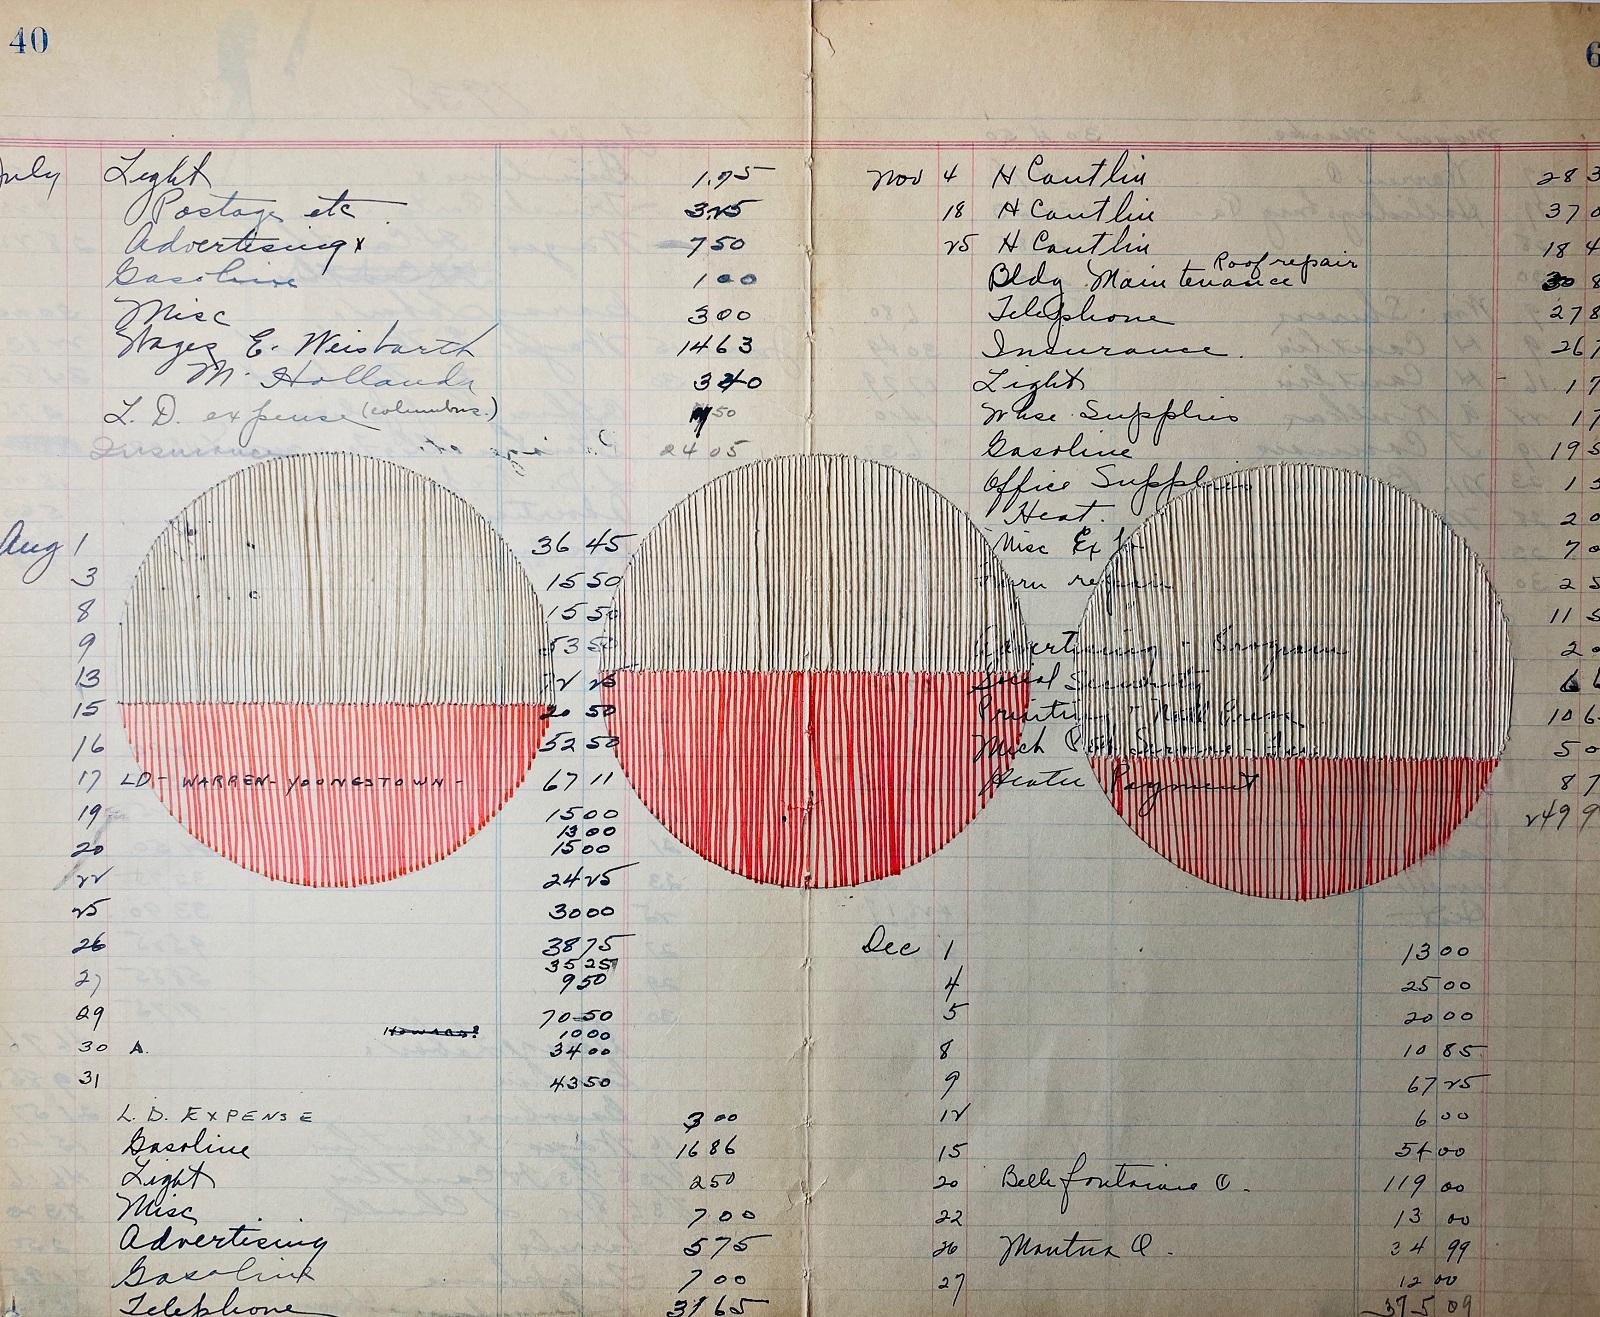 40
July Light 1.75
Postage etc. 3.25
Advertising x 7 50
Gasoline 1 00
Misc 3 00
Wages E. Weisbarth 14 63
M. Hollanda
L. D. expense (columbus.) 50
Insurance 24 05
Aug 1 36 45
3 15 50
8 15 50
9 53 50
13
15 20 50
16 52 50
17 LD - WARREN - YOUNGSTOWN - 67 11
19 15 00
13 00
20 15 00
22 24 25
25 30 00
26 38 75
35 25
27 9 50
29 70-50
HOWARD? 10 00
30 A. 34 00
31 43 50
L. D. EXPENSE 3 00
Gasoline 16 86
Light 2 50
Misc 7 00
Advertising 5 75
Gasoline 7 00
Telephone 31 65
6
Nov 4 H Cantlin 28 3
18 H Cantlin 37 0
25 H Cantlin 18 4
Roof repair
Bldg Maintenance 30 8
Telephone 27 8
Insurance. 26 7
Light 17
Whse Supplies 17
Gasoline 19 5
Office Supplies 1 5
Heat. 2 0
Misc Ex 7 0
2 5
11 5
Advertising - Program 2 0
Social Security 6
Printing 10 6
Mich 5 0
Heater Payment 8 7
249 9
Dec 1 13 00
4 25 00
5 20 00
8 10 85
9 67 25
12 6 00
15 54 00
20 Bellefontaine O. 119 00
22 13 00
26 Mantua O. 34 99
27 12 00
375 09